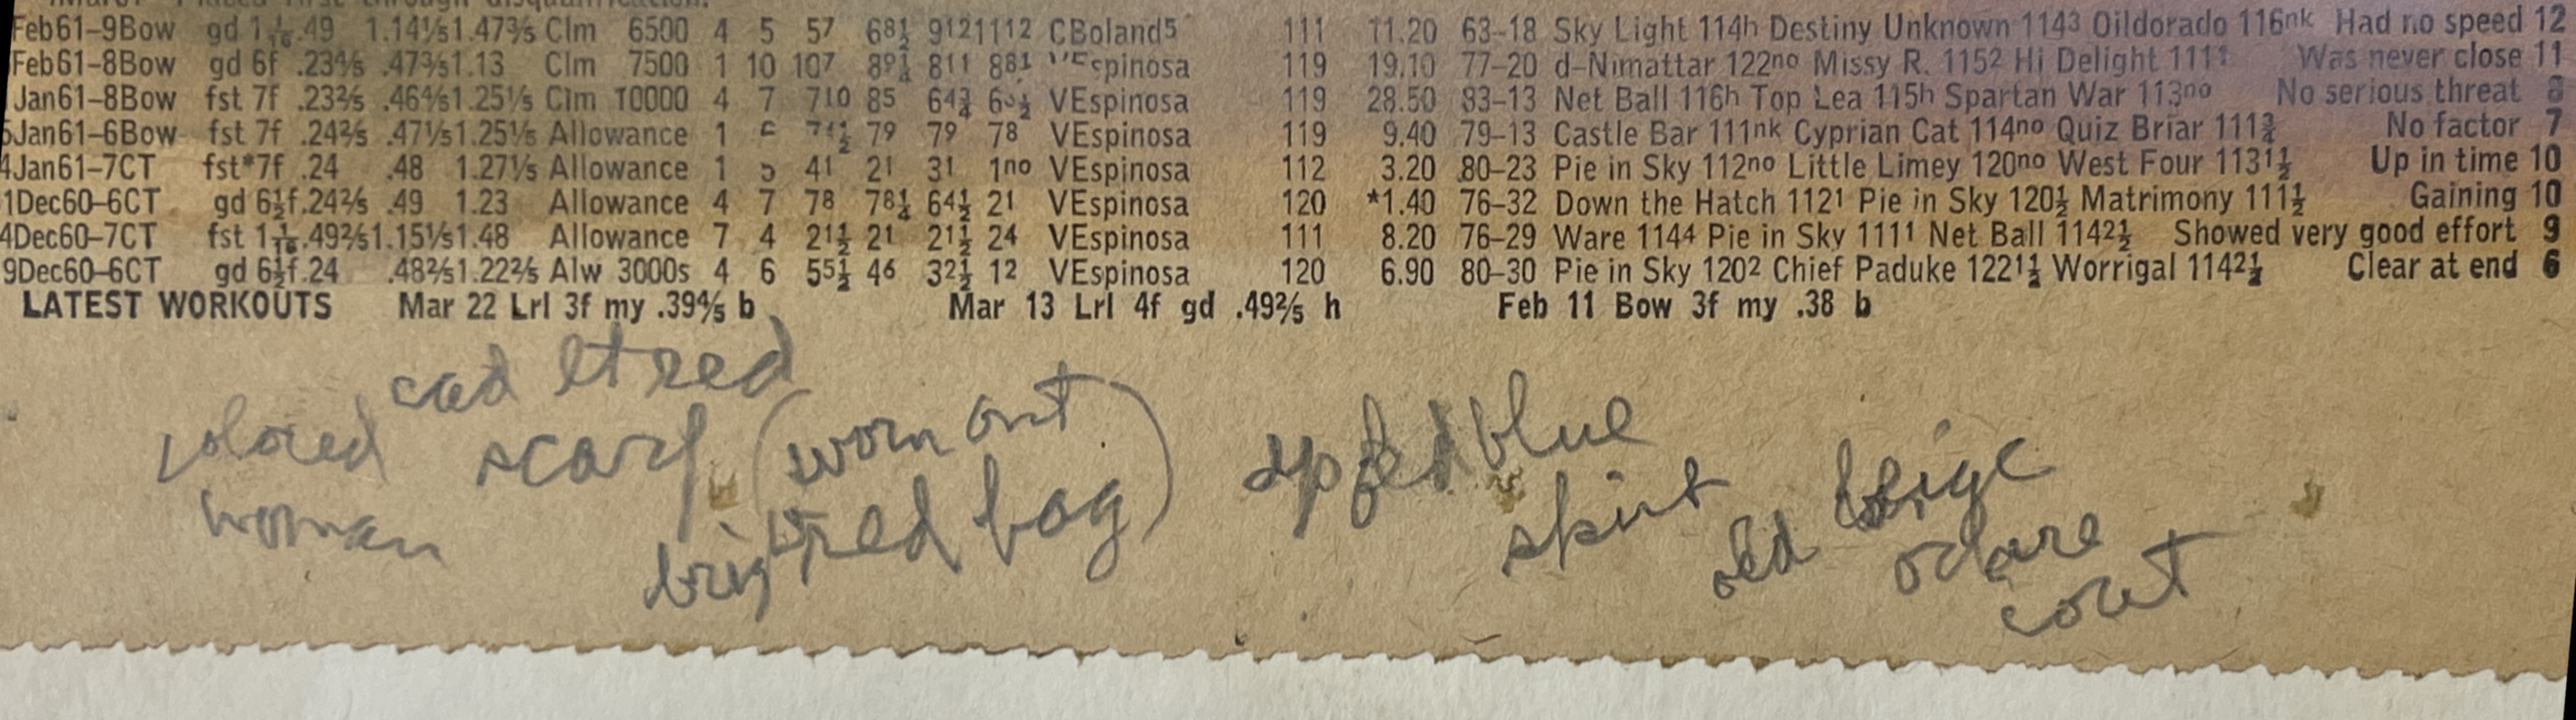 Feb61-9Bow gd 1 1/16 .49 1.14⅕ 1.47⅗ Clm 6500 4 5 5⁷ 6⁸½ 9¹² 11¹² CBoland⁵ 111 11.20 63-18 Sky Light 114ʰ Destiny Unknown 114³ Oildorado 116ⁿᵏ Had no speed 12
Feb61-8Bow gd 6f .23⅘ .47⅗ 1.13 Clm 7500 1 10 10⁷ 8⁹¼ 8¹¹ 8⁸¹ VEspinosa 119 19.10 77-20 d-Nimattar 122ⁿᵒ Missy R. 115² Hi Delight 111¹ Was never close 11
Jan61-8Bow fst 7f .23⅖ .46⅘ 1.25⅕ Clm 10000 4 7 7¹⁰ 8⁵ 6⁴¾ VEspinosa 119 28.50 83-13 Net Ball 116ʰ Top Lea 115ʰ Spartan War 113ⁿᵒ No serious threat 8
Jan61-6Bow fst 7f .24⅖ .47⅕ 1.25⅕ Allowance 1 7⁹ 7⁹ 7⁸ VEspinosa 119 9.40 79-13 Castle Bar 111ⁿᵏ Cyprian Cat 114ⁿᵒ Quiz Briar 111¾ No factor 7
4Jan61-7CT fst*7f .24 .48 1.27⅕ Allowance 1 5 4¹ 2¹ 3¹ 1ⁿᵒ VEspinosa 112 3.20 80-23 Pie in Sky 112ⁿᵒ Little Limey 120ⁿᵒ West Four 113¹½ Up in time 10
1Dec60-6CT gd 6½f .24⅖ .49 1.23 Allowance 4 7 7⁸ 7⁸¼ 6⁴½ 2¹ VEspinosa 120 *1.40 76-32 Down the Hatch 112¹ Pie in Sky 120½ Matrimony 111½ Gaining 10
4Dec60-7CT fst 1 1/16 .49⅖ 1.15⅕ 1.48 Allowance 7 4 2¹½ 2¹ 2¹½ 2⁴ VEspinosa 111 8.20 76-29 Ware 114⁴ Pie in Sky 111¹ Net Ball 114²½ Showed very good effort 9
9Dec60-6CT gd 6½f .24 .48⅖ 1.22⅖ Alw 3000s 4 6 5⁵½ 4⁶ 3²½ 1² VEspinosa 120 6.90 80-30 Pie in Sky 120² Chief Paduke 122¹½ Worrigal 114²½ Clear at end 6
LATEST WORKOUTS Mar 22 Lrl 3f my .39⅘ b Mar 13 Lrl 4f gd .49⅖ h Feb 11 Bow 3f my .38 b
colored
woman
red
scarf (worn out
red bag)
blue
skirt
old beige
coat